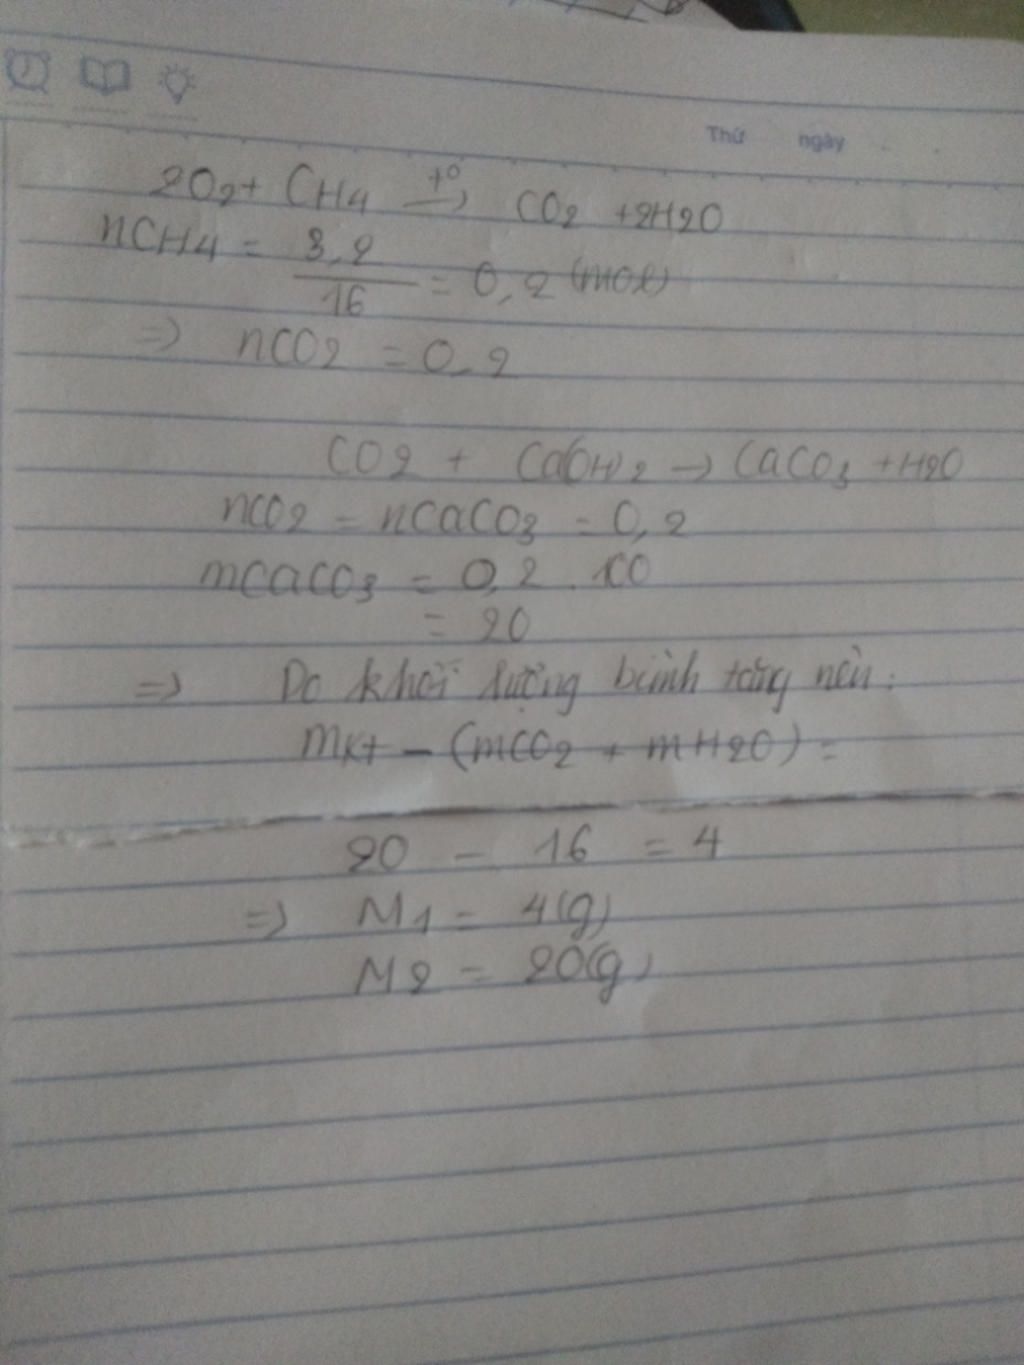 Thứ ngày
2O2+ CH4 t° → CO2 +2H2O
nCH4 = 3,2
16 = 0,2 (mol)
=> nCO2 = 0,2
CO2 + Ca(OH)2 → CaCO3 +H2O
nCO2 = nCaCO3 = 0,2
mCaCO3 = 0,2 . 100
= 20
=> Do khối lượng bình tăng nên:
mkt - (mCO2 + mH2O) =
20 - 16 = 4
=> M1 = 4(g)
M2 = 20(g)